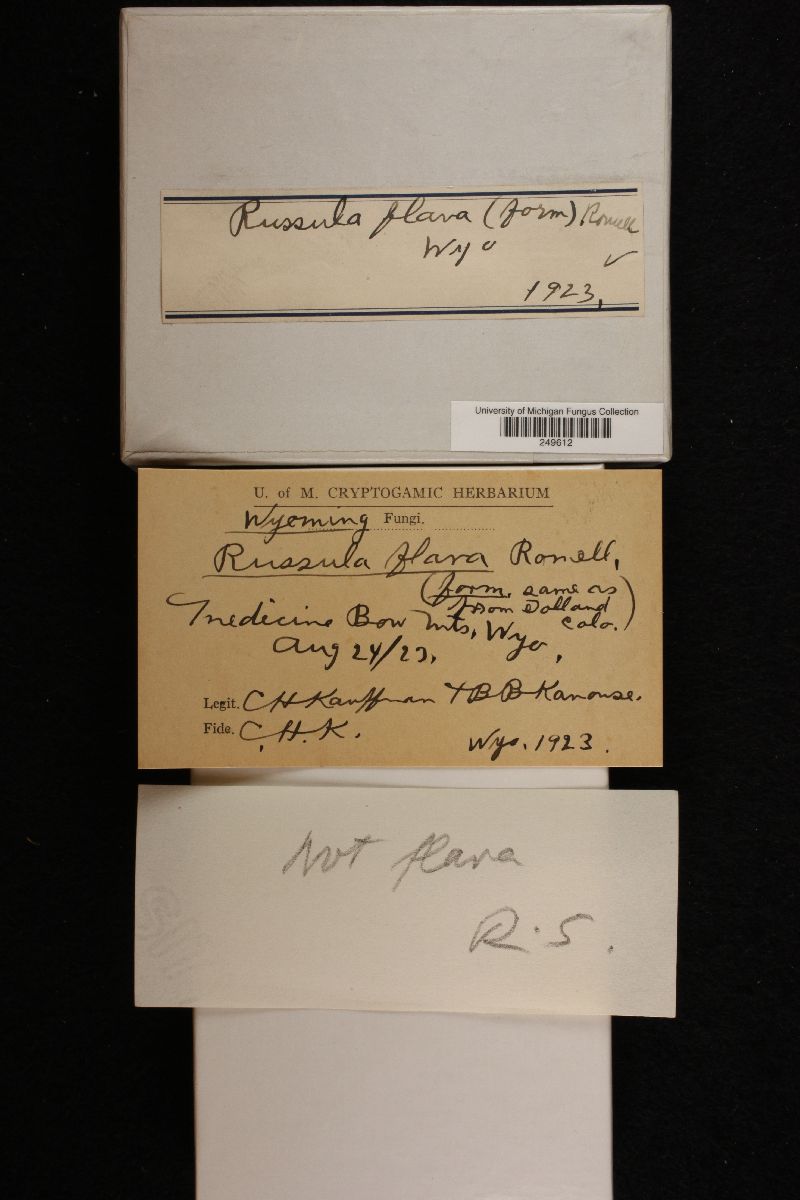 Russula flava (form) Romell
Wyo ✓
1923,
University of Michigan Fungus Collection
249612
U. of M. CRYPTOGAMIC HERBARIUM
Wyoming Fungi.
Russula flava Romell,
(form. same as
from Tolland
Colo.)
Medicine Bow Mts, Wyo,
Aug 24/23,
Legit. C H Kauffman + B B Kanouse.
Fide. C. H. K.
Wyo. 1923.
Not flava
R. S.